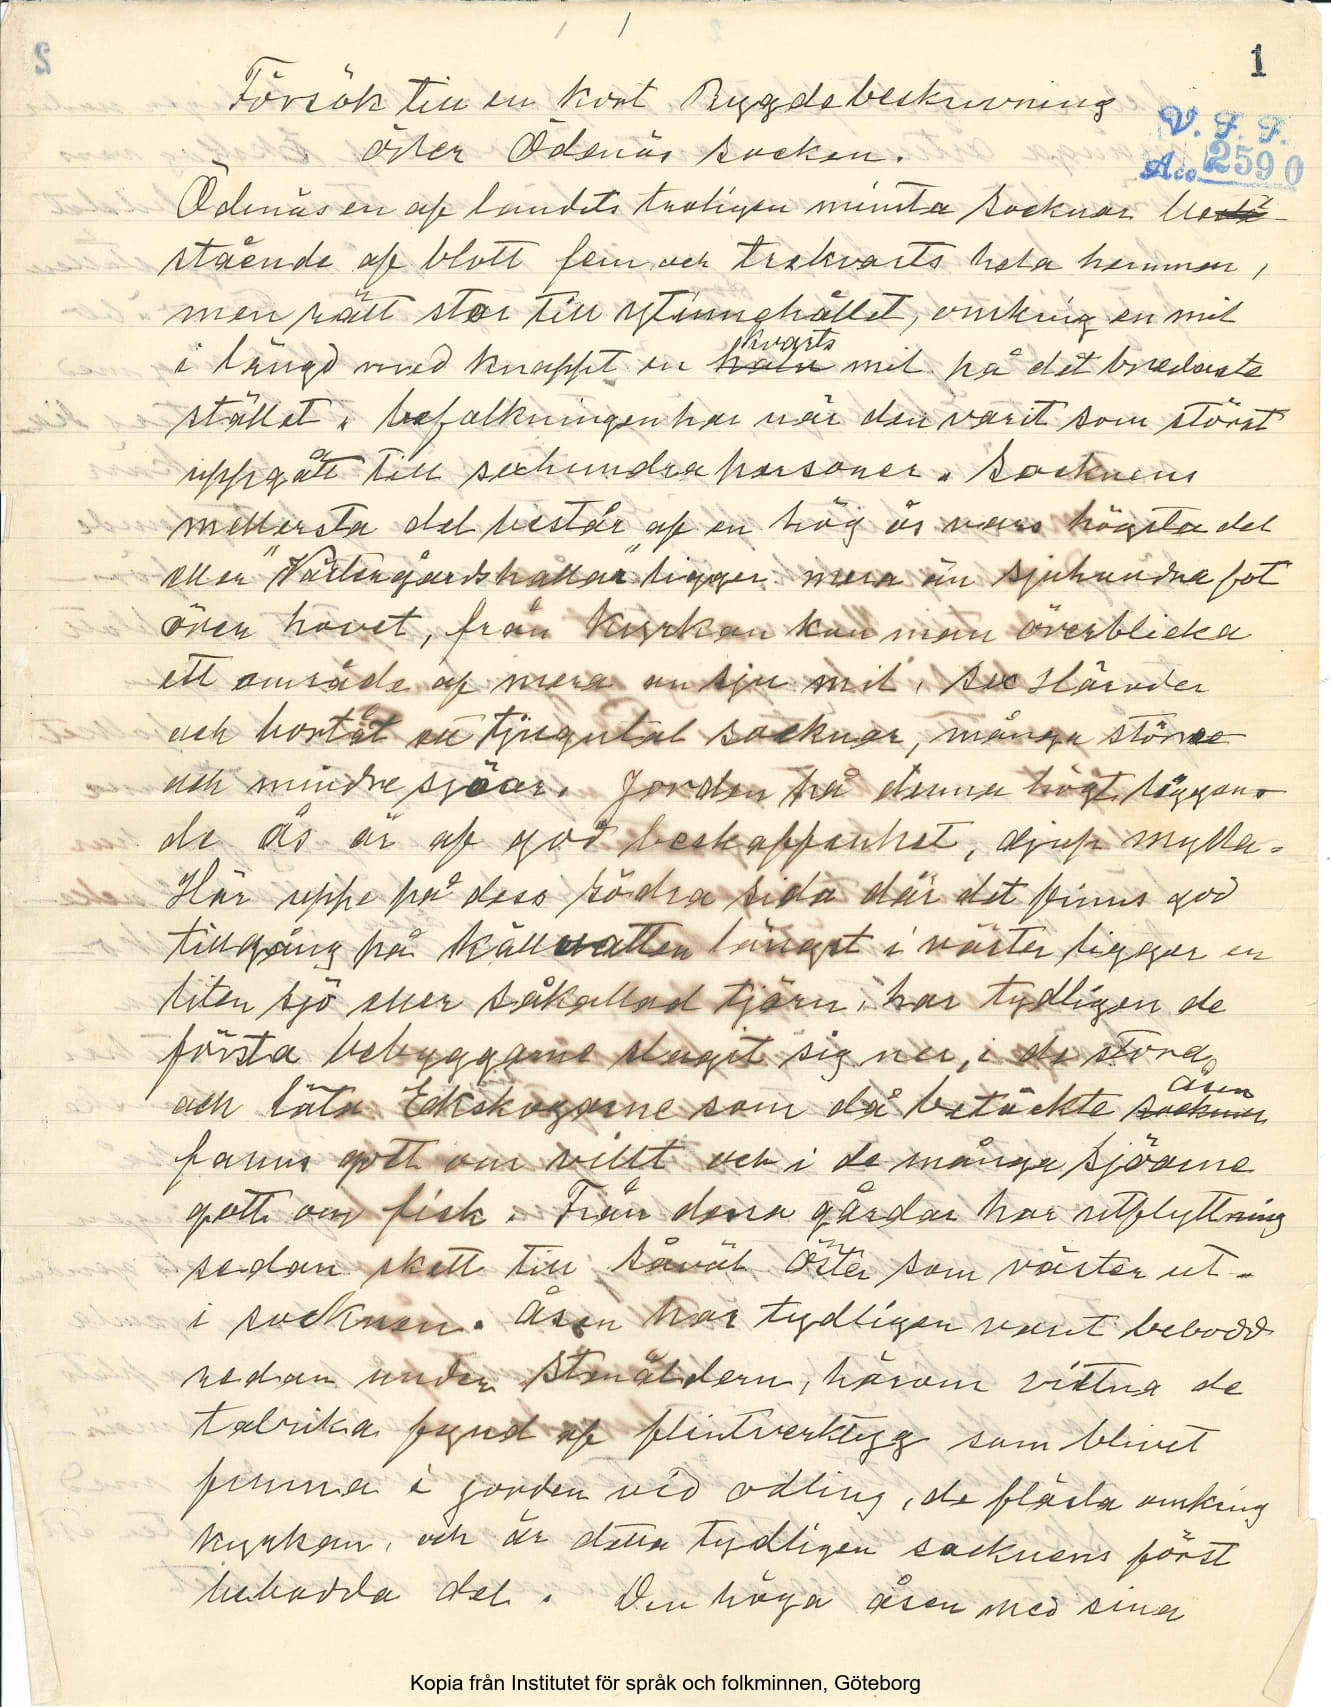 1
V. F. F.
Acc 2590
Försök till en kort Bygdebeskrivning
över Ödenäs socken.
Ödenäs en af landets troligen minsta socknar be-
stående af blott fem och trekvarts hela hemman,
men rätt stor till ytinnehållet, omkring en mil
i längd med knappt en kvarts mil på det bredaste
stället. befolkningen har när den varit som störst
uppgått till sexhundra personer. Socknens
mellersta del består af en hög ås vars högsta del
eller "Västergårdshallar" ligger mera än sjuhundra fot
över havet, från kyrkan kan man överblicka
ett område af mera än sju mil, sex Härader
och bortåt ett tjugutal socknar, många större
och mindre sjöar. Jorden på denna högt liggan-
de ås är af god beskaffenhet, djup mylla.
Här uppe på dess södra sida där det finns god
tillgång på källvatten längst i väster ligger en
liten sjö eller såkallad tjärn, har tydligen de
första bebyggarne slagit sig ner, i de stora
och täta Ekskogarne som då betäckte åsen
fanns gott om villt och i de många sjöarne
gott om fisk. Från dessa gårdar har utflyttning
sedan skett till såväl öster som väster ut-
i socknen. Åsen har tydligen varit bebodd
redan under Stenåldern, härom vittna de
talrika fynd af flintverktyg som blivet
funna i jorden vid odling, de flästa omkring
kyrkan, och är detta tydligen socknens först
bebodda del. Den höga åsen med sina
Kopia från Institutet för språk och folkminnen, Göteborg